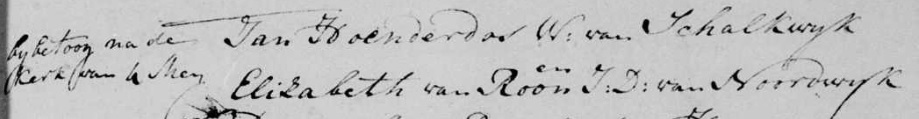 by betoog na de
kerk van 4 Mey
Jan Hoenderdos W: van Schalkwyk
en
Elizabeth van Roon J: D: van Noordwyk